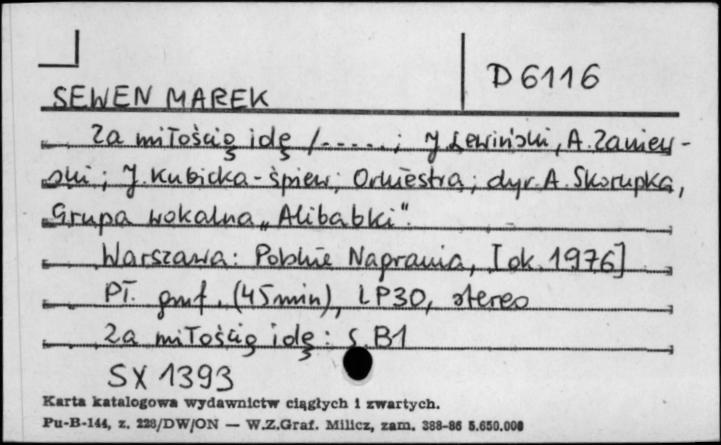 D 6116
SEWEN MAREK
Za miłością idę /-----; J. Lewiński, A. Zaniew-
ski; J. Kubicka - śpiew; Orkiestra; dyr. A. Skorupka,
Grupa wokalna „Alibabki".
Warszawa: Polskie Nagrania, [ok. 1976]
Pł. gmf. (45 min), LP30, stereo
Za miłością idę: s. B1
SX 1393
Karta katalogowa wydawnictw ciągłych i zwartych.
Pu-B-144, z. 228/DW/ON — W.Z.Graf. Milicz, zam. 388-86 5.650.000